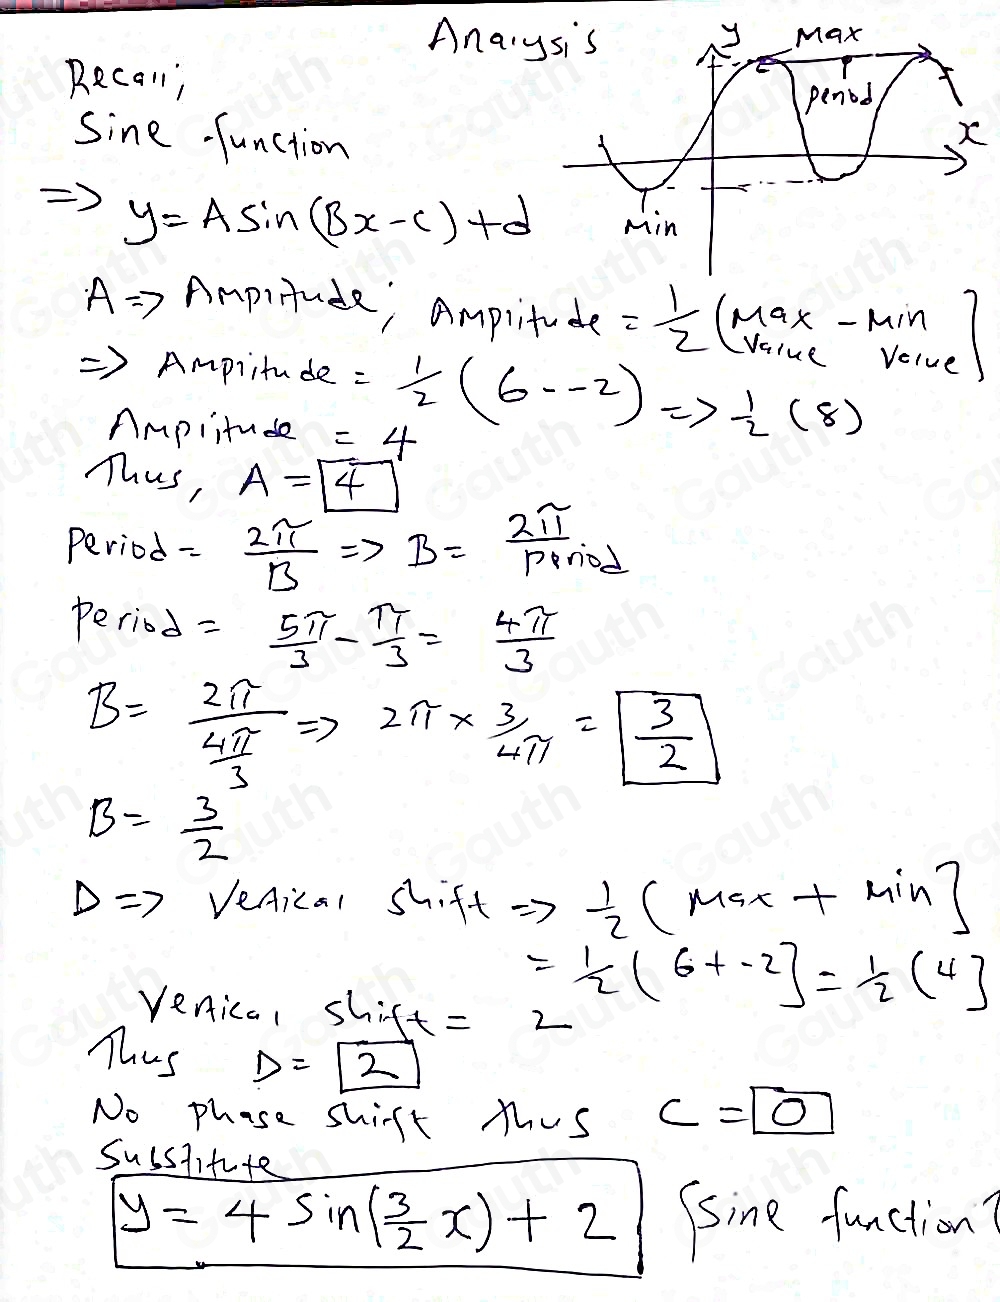 Analysis
Recall;
Sine function
=> y = A sin(Bx - c) + d
y
Max
period
x
Min
A => Amplitude; Amplitude = 1/2 (Max Value - Min Value]
=> Amplitude = 1/2 (6 - -2) => 1/2 (8)
Amplitude = 4
Thus, A = 4
Period = 2π/B => B = 2π/period
Period = 5π/3 - π/3 = 4π/3
B = 2π/(4π/3) => 2π × 3/4π = 3/2
B = 3/2
D => Vertical shift => 1/2 (Max + Min]
= 1/2 (6 + -2] = 1/2 (4]
Vertical shift = 2
Thus D = 2
No phase shift thus C = 0
Substitute
y = 4 sin(3/2 x) + 2 {Sine function}
Gauth